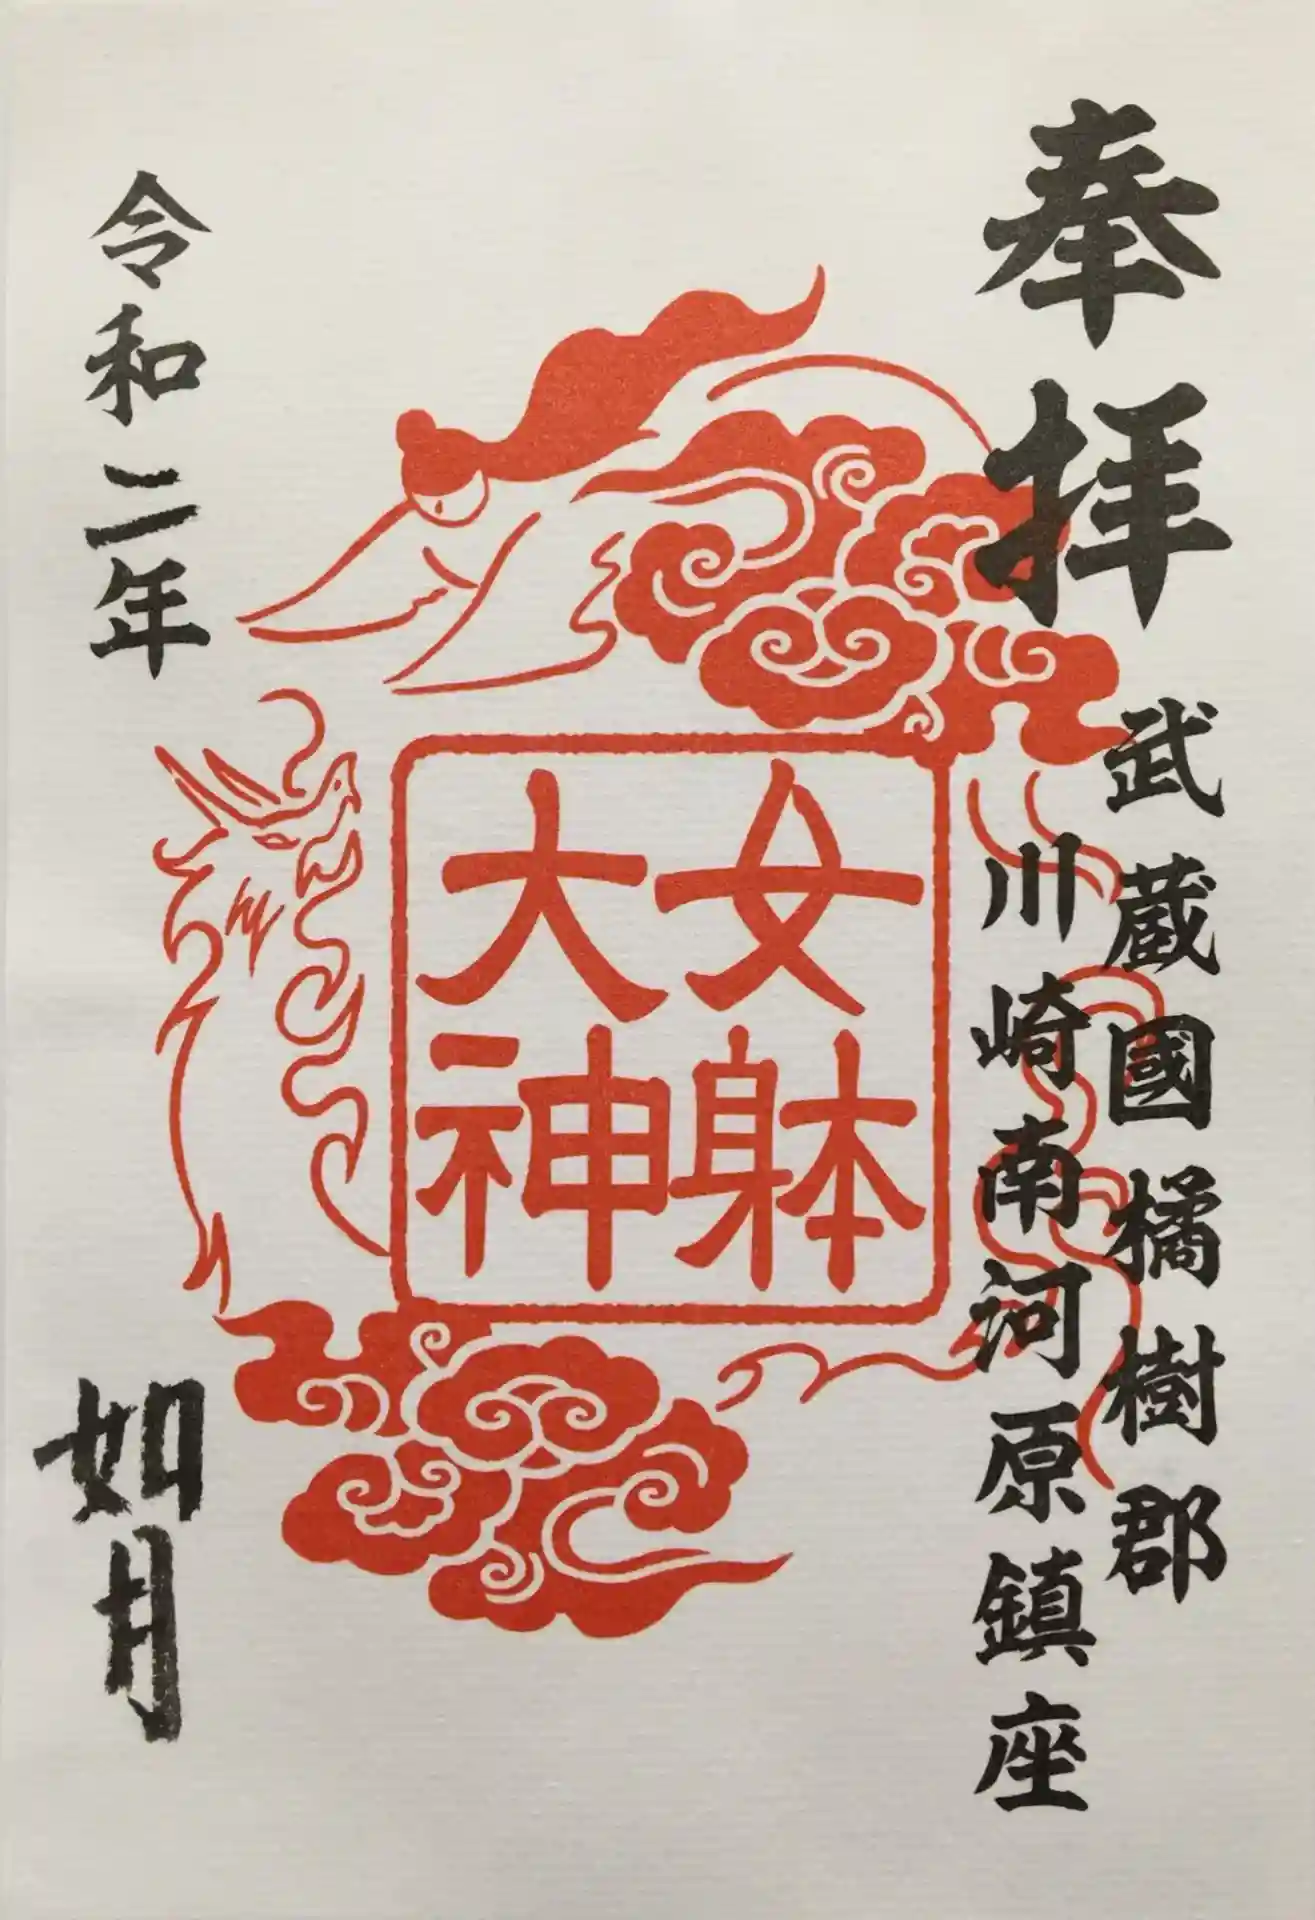 奉拝
武蔵國橘樹郡
川崎南河原鎮座
女躰
大神
令和二年
如月